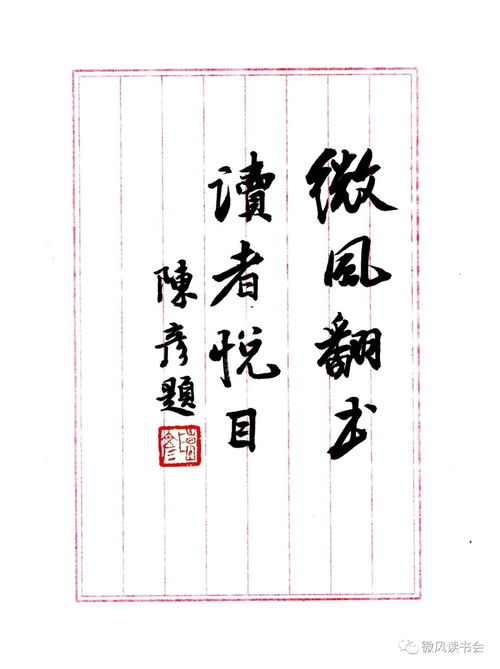 微風翻书
讀者悦目
陳彦題
微风读书会